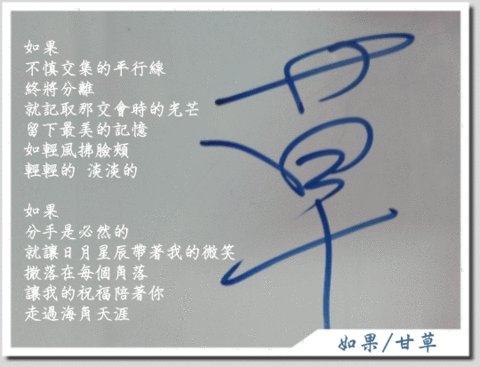 如果
不慎交集的平行線
終將分離
就記取那交會時的光芒
留下最美的記憶
如輕風拂臉頰
輕輕的 淡淡的
如果
分手是必然的
就讓日月星辰帶著我的微笑
撒落在每個角落
讓我的祝福陪著你
走過海角天涯
草
如果/甘草